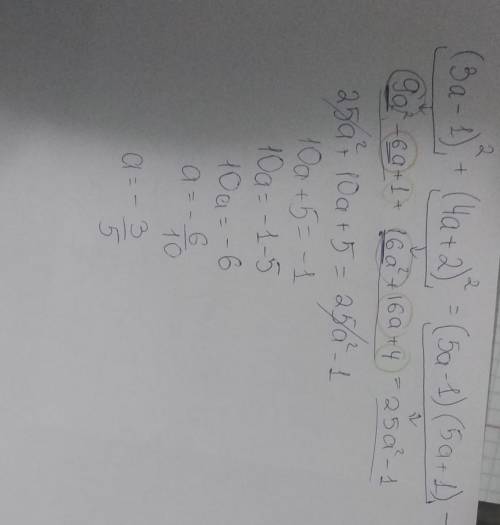 (3a-1)² + (4a+2)² = (5a-1)(5a+1) -
9a² - 6a + 1 + 16a² + 16a + 4 = 25a² - 1
25a² + 10a + 5 = 25a² - 1
10a + 5 = -1
10a = -1-5
10a = -6
a = -6/10
a = -3/5